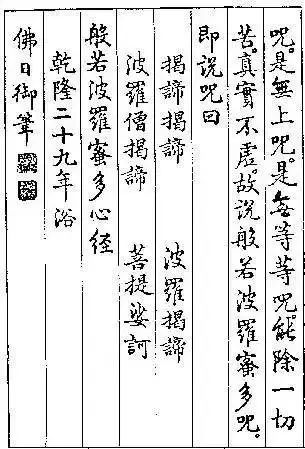 咒。是無上咒。是無等等咒。能除一切
苦。真實不虛。故说般若波羅蜜多咒。
即说咒曰
揭諦揭諦　波羅揭諦
波羅僧揭諦　菩提娑訶
般若波羅蜜多心经
乾隆二十九年浴
佛日御筆